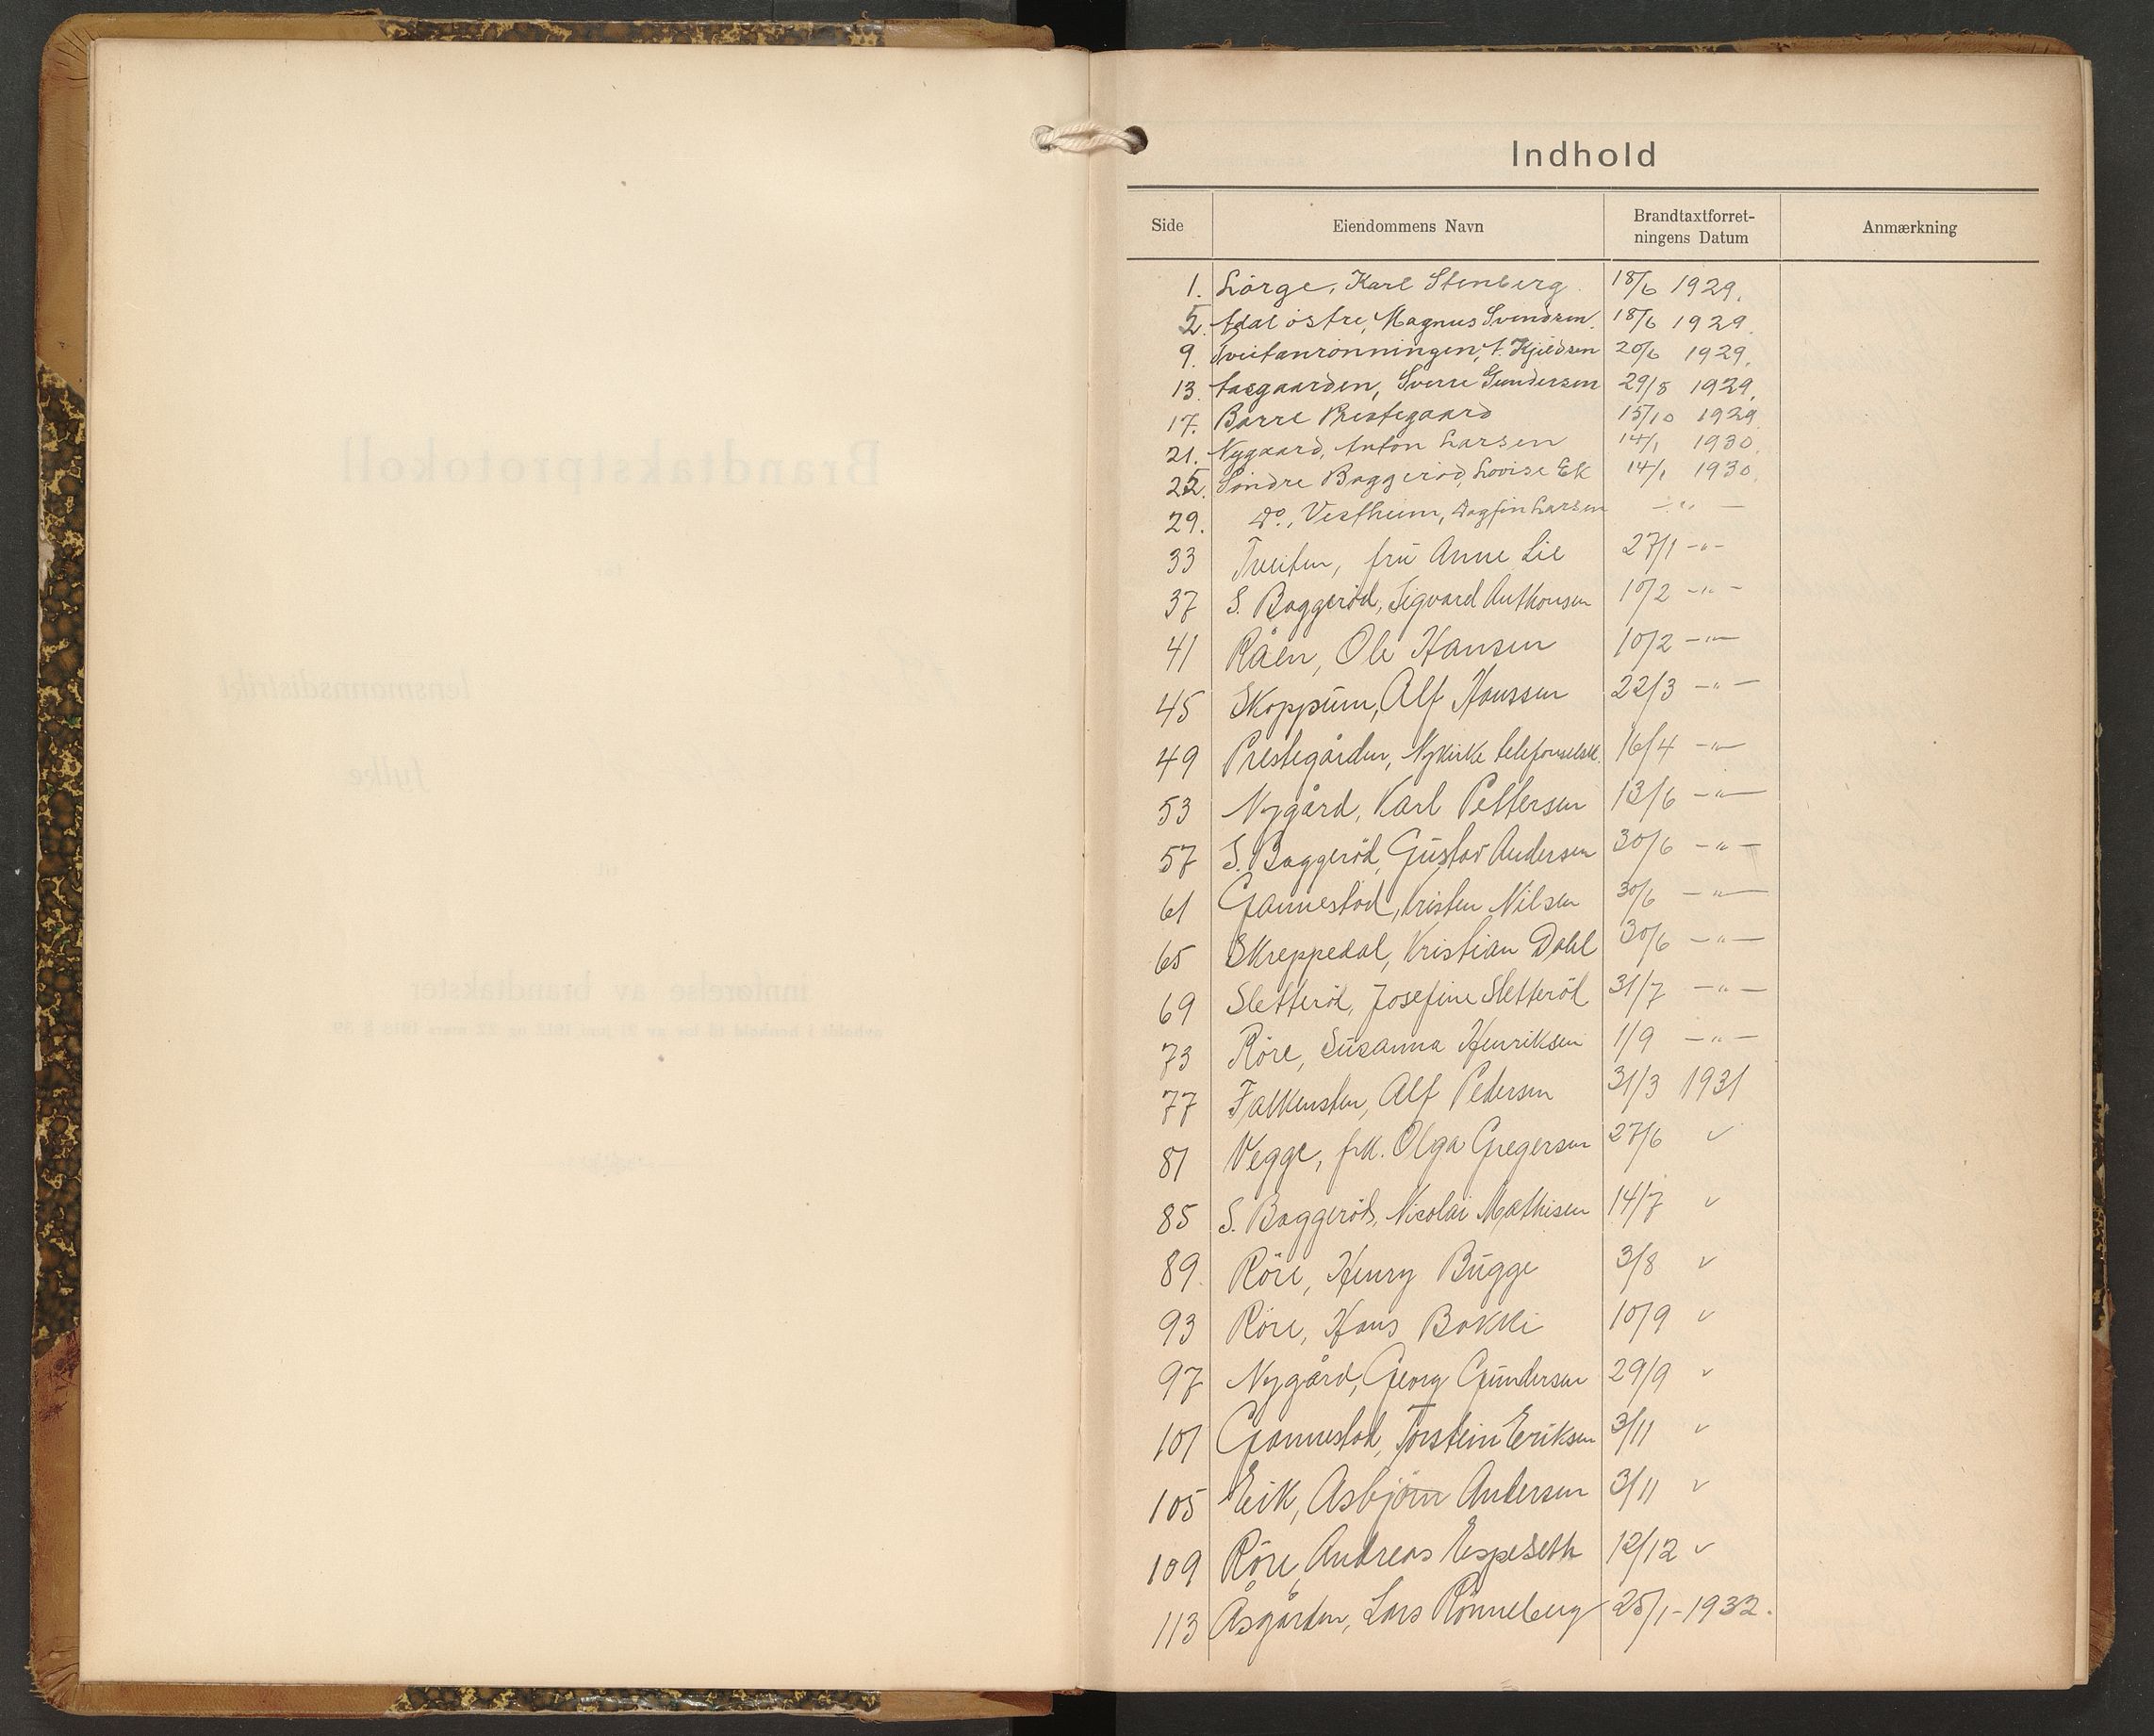 Indhold
Side Eiendommens Navn Brandtaxtforret-
ningens Datum Anmærkning
1. Lörge, Karl Stenberg 18/6 1929.
5. Adal östre, Magnus Svendsen. 18/6 1929.
9. Tveitanrönningen, A. Kjeldsen 20/6 1929.
13. Aasgaarden, Sverre Gundersen 29/8 1929.
17. Borre Prestegaard 15/10 1929
21. Nygaard, Anton Larsen 14/1 1930.
25. Söndre Baggeröd, Lovise Ek 14/1 1930.
29. Do., Vestheim, Dagfin Larsen —"—
33 Tveiten, frü Anne Lie 27/1 -"-
37 S. Baggeröd, Sigvard Anthonsen 10/2 -"-
41 Råen, Ole Hansen 10/2 -"-
45 Skoppüm, Alf Hanssen 22/3 -"-
49 Prestegården, Nykirke telefonselsk. 16/4 -"-
53 Nygård, Karl Pettersen 13/6 -"-
57 S. Baggeröd, Güstav Andersen 30/6 -"-
61 Gannestad, Kristen Nilsen 30/6 -"-
65 Skreppedal, Kristian Dahl 30/6 -"-
69 Sletteröd, Josefine Sletteröd 31/7 -"-
73 Röre, Süsanna Henriksen 1/9 -"-
77 Falkensten, Alf Pedersen 31/3 1931
81 Vegge, frk. Olga Gregersen 27/6 "
85 S. Baggeröd, Nicolai Mathisen 14/7 "
89. Röre, Henry Bügge 3/8 "
93 Röre, Hans Bakke 10/9 "
97 Nygård, Georg Gündersen 29/9 "
101 Gannestad, Torstein Eriksen 3/11 "
105 Eik, Asbjörn Andersen 3/11 "
109 Röre, Andreas Espeseth 12/12 "
113 Åsgården, Lars Rönneberg 25/1-1932.